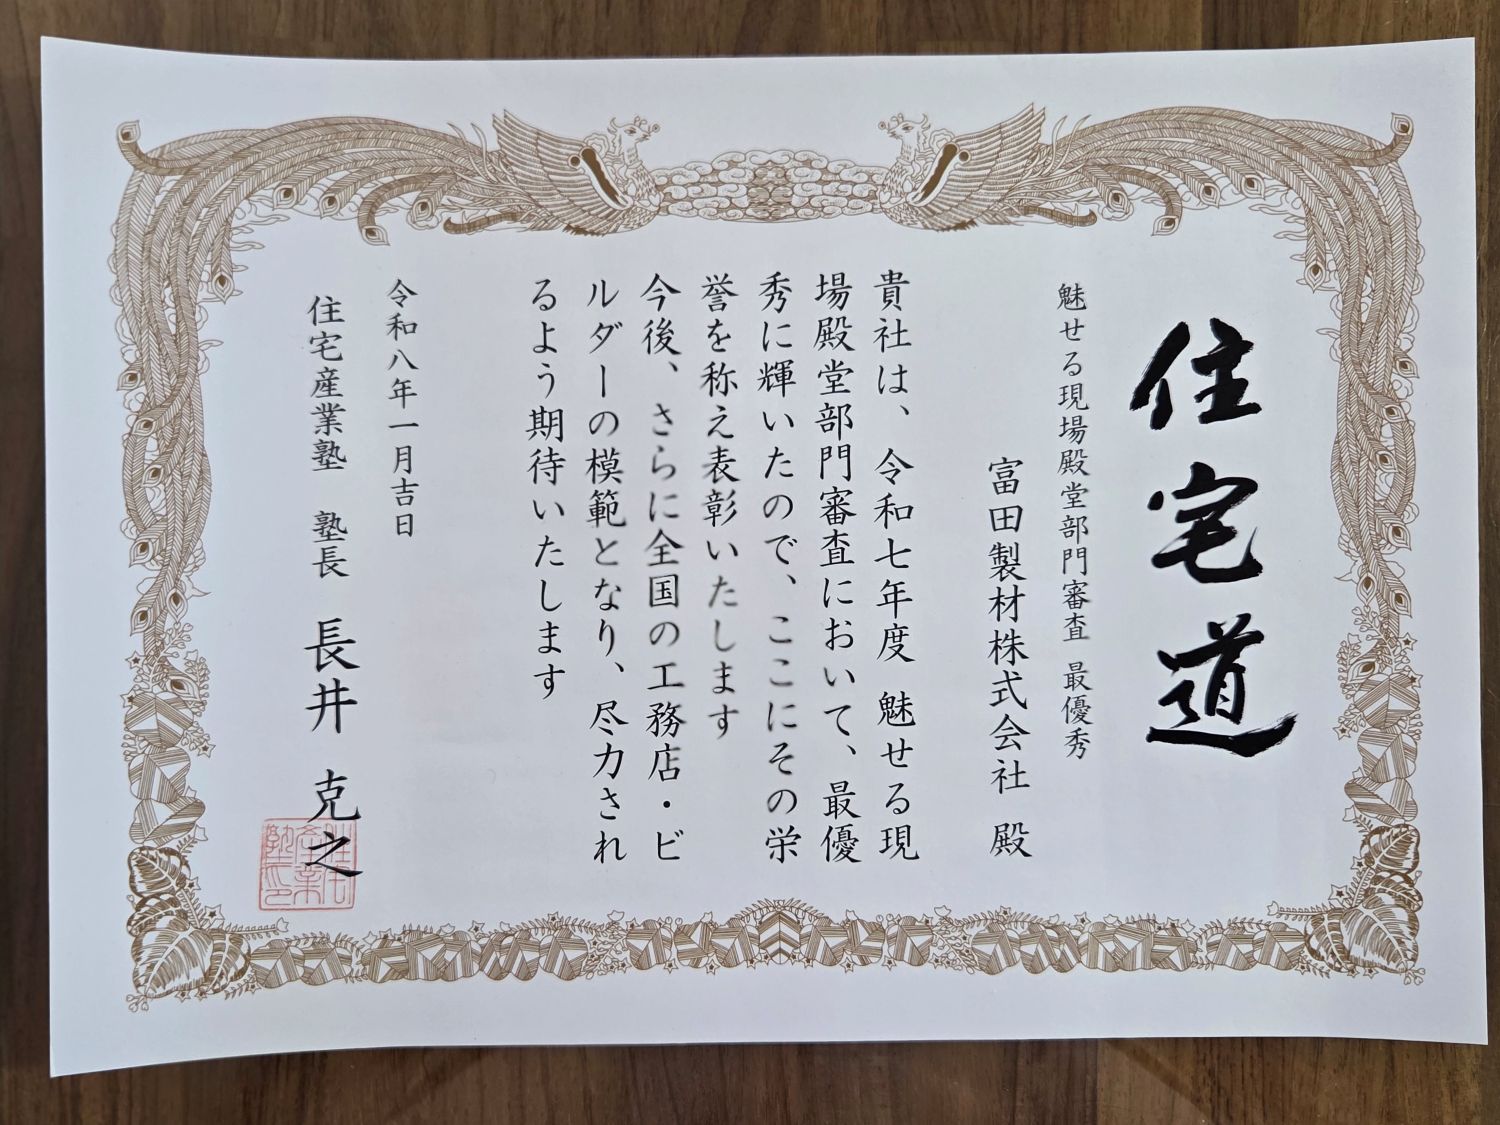 住宅道
魅せる現場殿堂部門審査 最優秀
富田製材株式会社 殿
貴社は、令和七年度 魅せる現
場殿堂部門審査において、最優
秀に輝いたので、ここにその栄
誉を称え表彰いたします
今後、さらに全国の工務店・ビ
ルダーの模範となり、尽力され
るよう期待いたします
令和八年一月吉日
住宅産業塾 塾長 長井 克之
住宅
産業
塾印